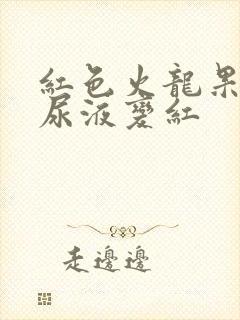 紅色火龍果
尿液變紅
走邊邊